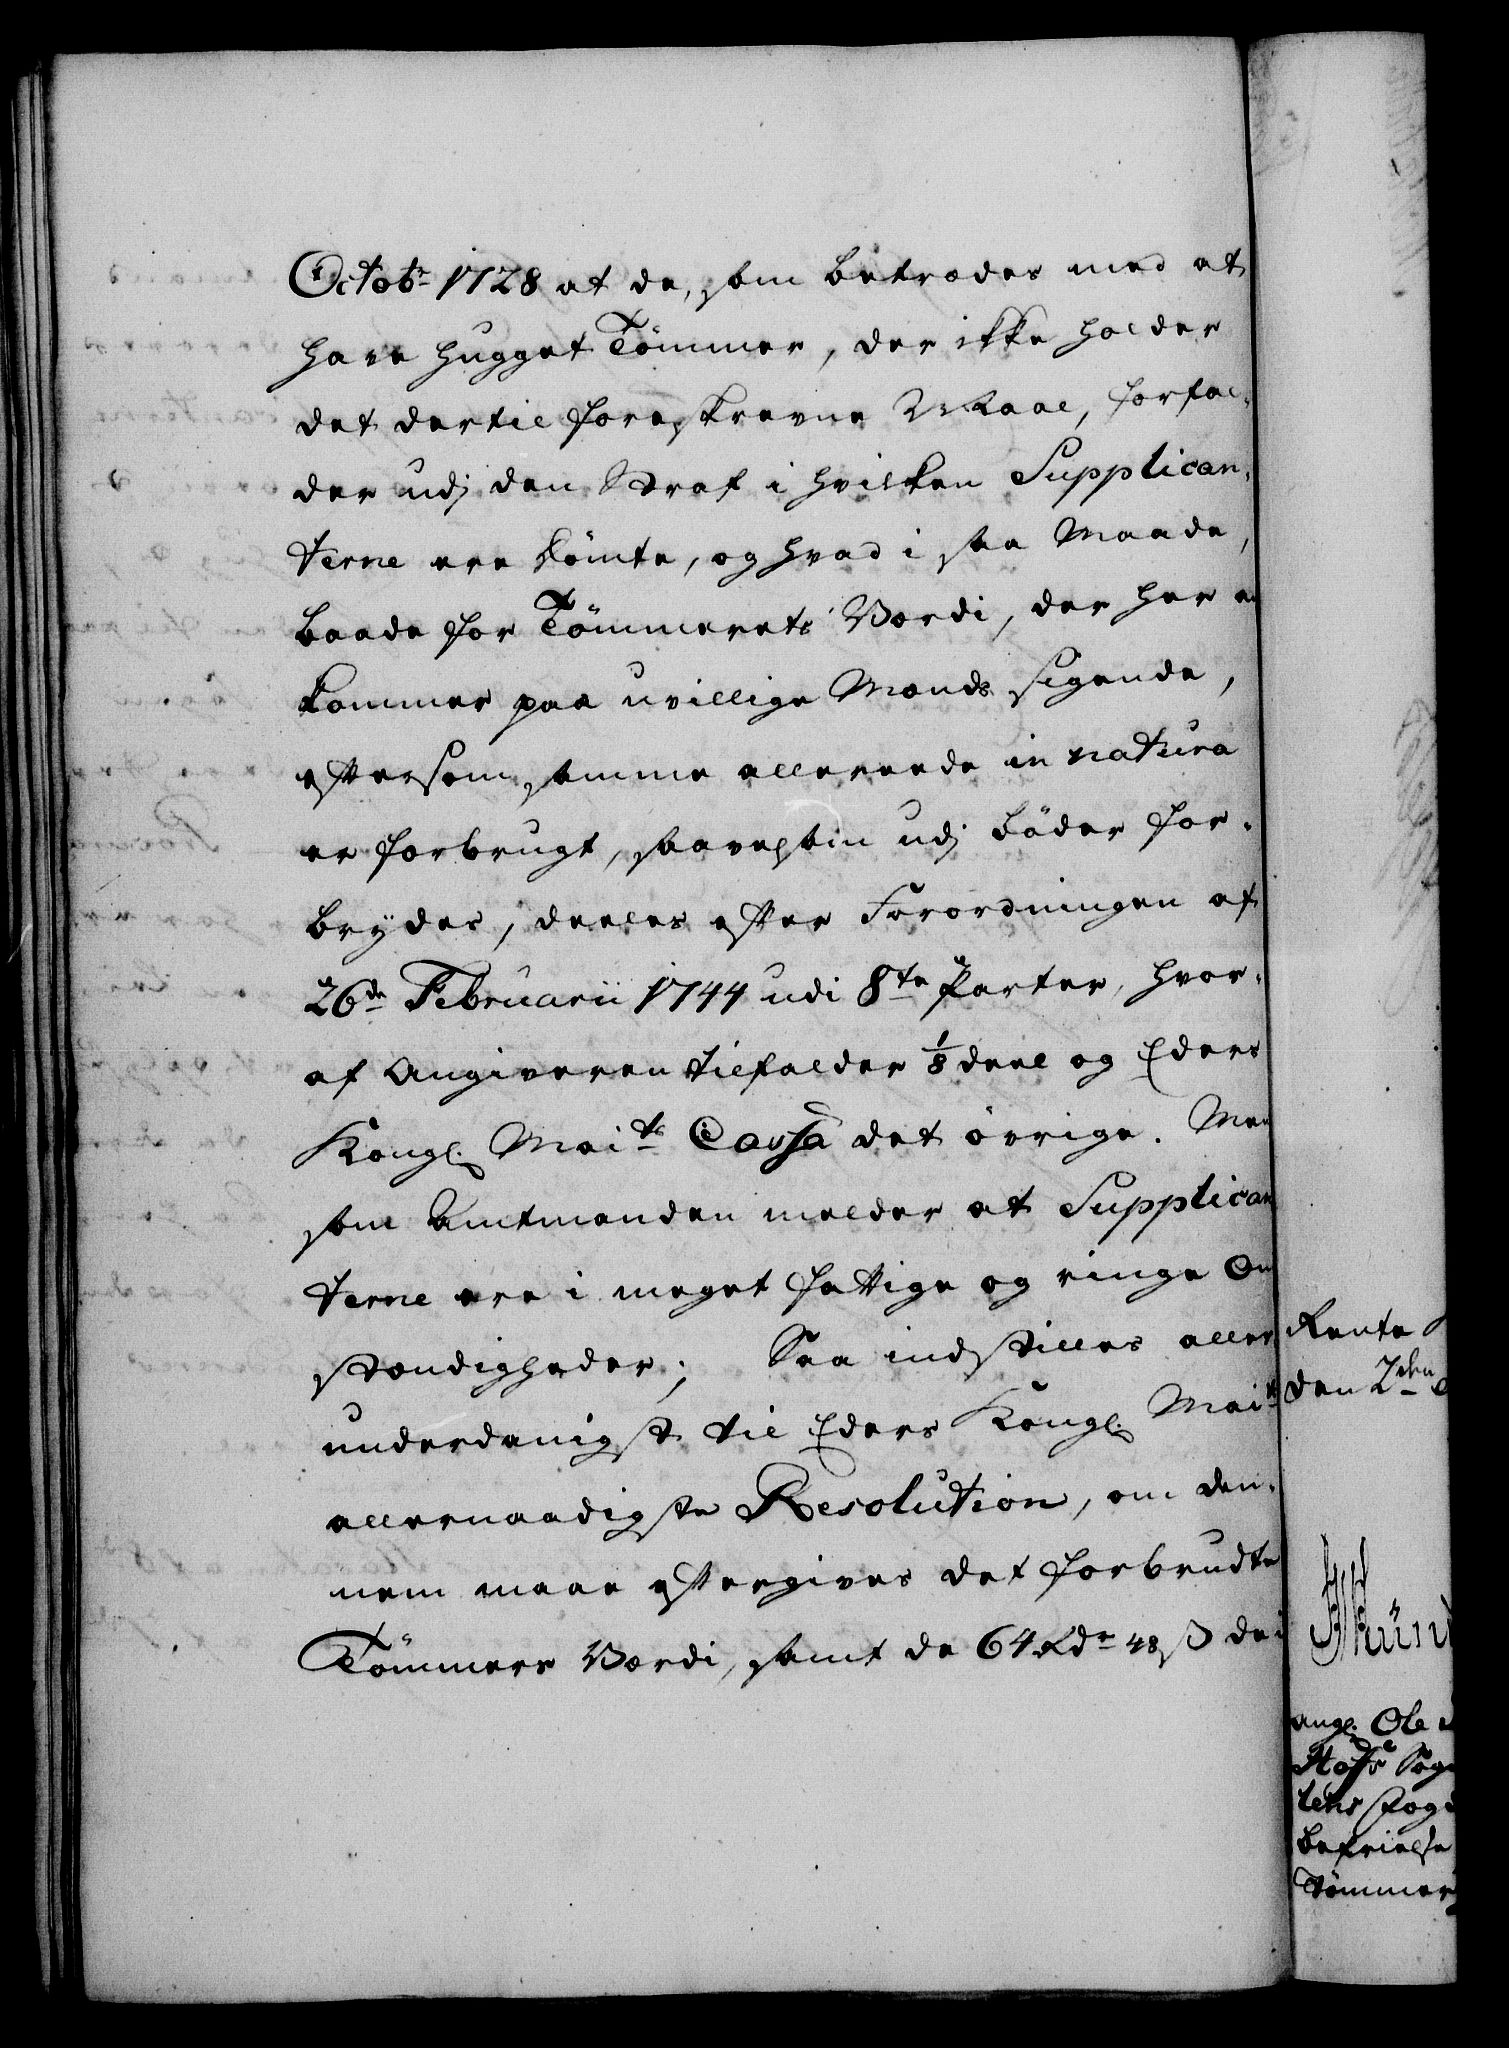 Octobr 1728 at de, som betrædes med at
have hugget Tömmer, der ikke holder
det dertil foreskrevne Maal, forfal-
der udj den Straf i hvilken Supplican-
terne ere dömte, og hvad i saa Maade,
baade for Tömmerets Værdi, der her an
kommer paa uvillige Mænds sigende,
eftersom samme allereede in natura
er forbrugt, saavelsom udj Böder for-
brydes, deeles efter Forordningen af
26de Februarii 1744 udi 8te Parter, hvor-
af Angiveren tilfalder 1/8 deel og Eders
Kongl. Maits Cassa det övrige. Men
som Amtmanden melder at Supplican
terne ere i meget fattige og ringe Om
stændigheder; Saa indstilles aller
underdanigst til Eders Kongl. Maits
allernaadigste Resolution, om den-
nem maae eftergives det forbrudte
Tömmers Værdi, samt de 64 Rdr 48 ß de i
Rente
den 2den
angl. Ole
Sogn
lens Fogd
befrielse
Tömmer